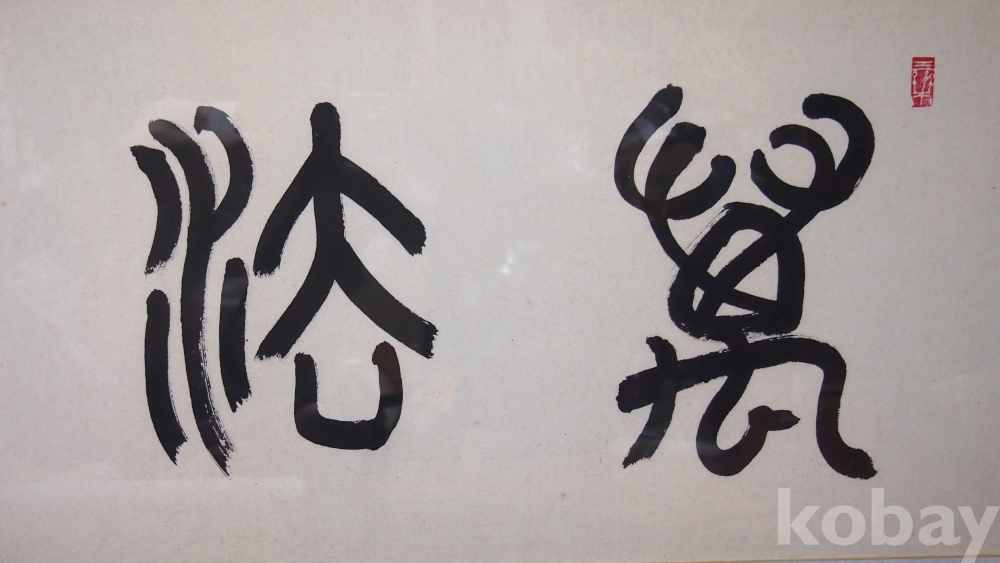 萬法
kobay